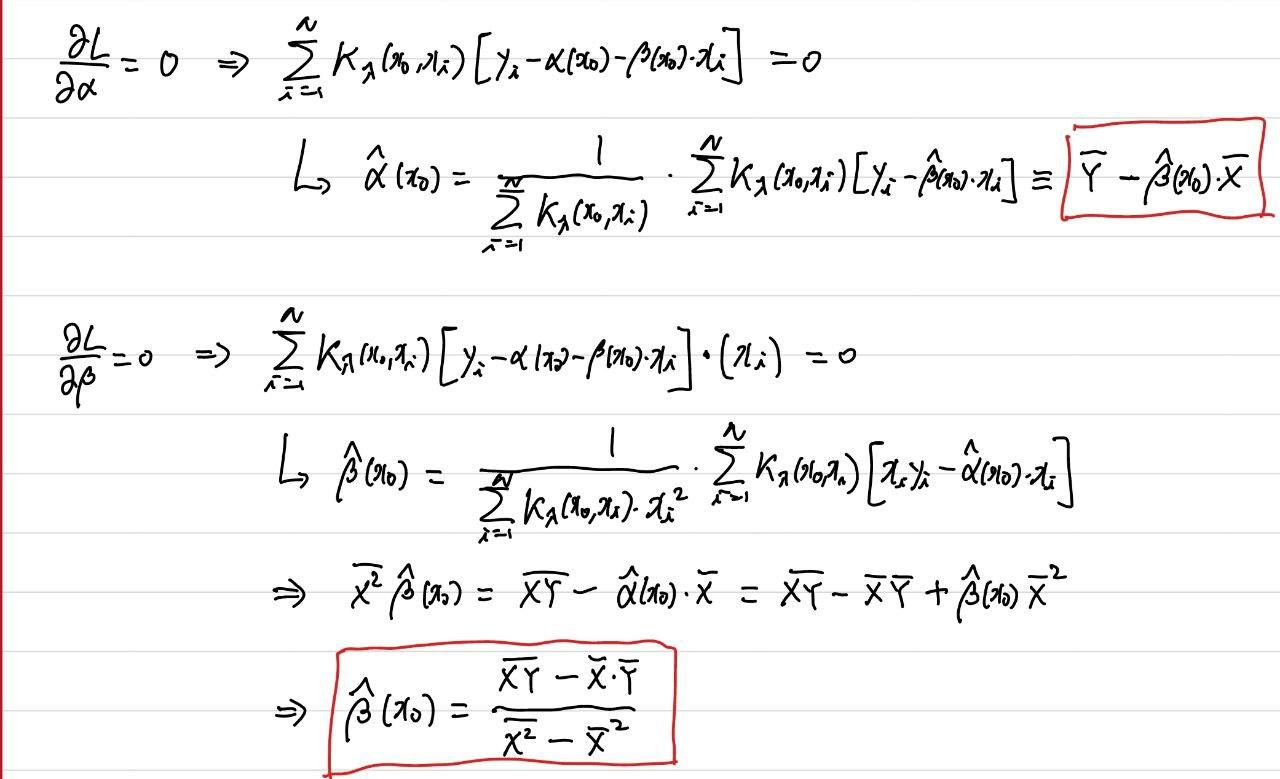 ∂L/∂α = 0 ⇒ ∑_{i=1}^{N} K_λ(x₀,x_i)[y_i − α(x₀) − β(x₀)·x_i] = 0
↳ α̂(x₀) = 1/(∑_{i=1}^{N} K_λ(x₀,x_i)) · ∑_{i=1}^{N} K_λ(x₀,x_i)[y_i − β̂(x₀)·x_i] ≡ Y̅ − β̂(x₀)·X̅
∂L/∂β = 0 ⇒ ∑_{i=1}^{N} K_λ(x₀,x_i)[y_i − α(x₀) − β(x₀)·x_i]·(x_i) = 0
↳ β̂(x₀) = 1/(∑_{i=1}^{N} K_λ(x₀,x_i)·x_i²) · ∑_{i=1}^{N} K_λ(x₀,x_i)[x_i y_i − α̂(x₀)·x_i]
⇒ \overline{X²} β̂(x₀) = \overline{XY} − α̂(x₀)·X̅ = \overline{XY} − X̅ Y̅ + β̂(x₀) X̅²
⇒ β̂(x₀) = (\overline{XY} − X̅·Y̅)/(\overline{X²} − X̅²)